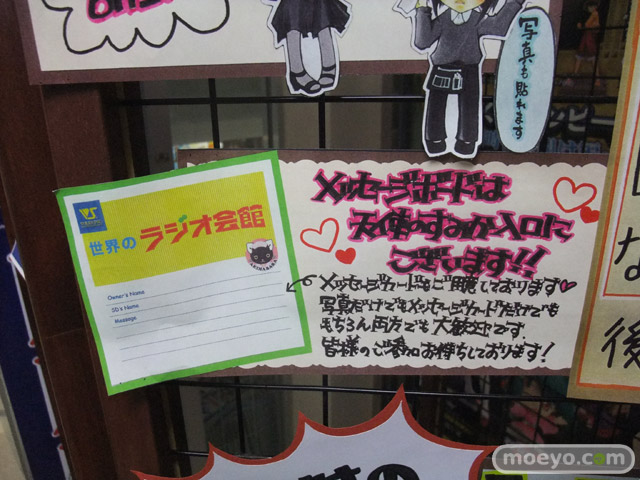 写真も
貼れます
VS
世界のラジオ会館
Owner's Name
SD's Name
Message
メッセージボードは
天使のすみか入口に
ございます!!
メッセージカードもご用意しております♥
写真だけでもメッセージカードだけでも
もちろん両方でも大歓迎です。
皆様のご参加お待ちしております!
な
後
の
moeyo.com